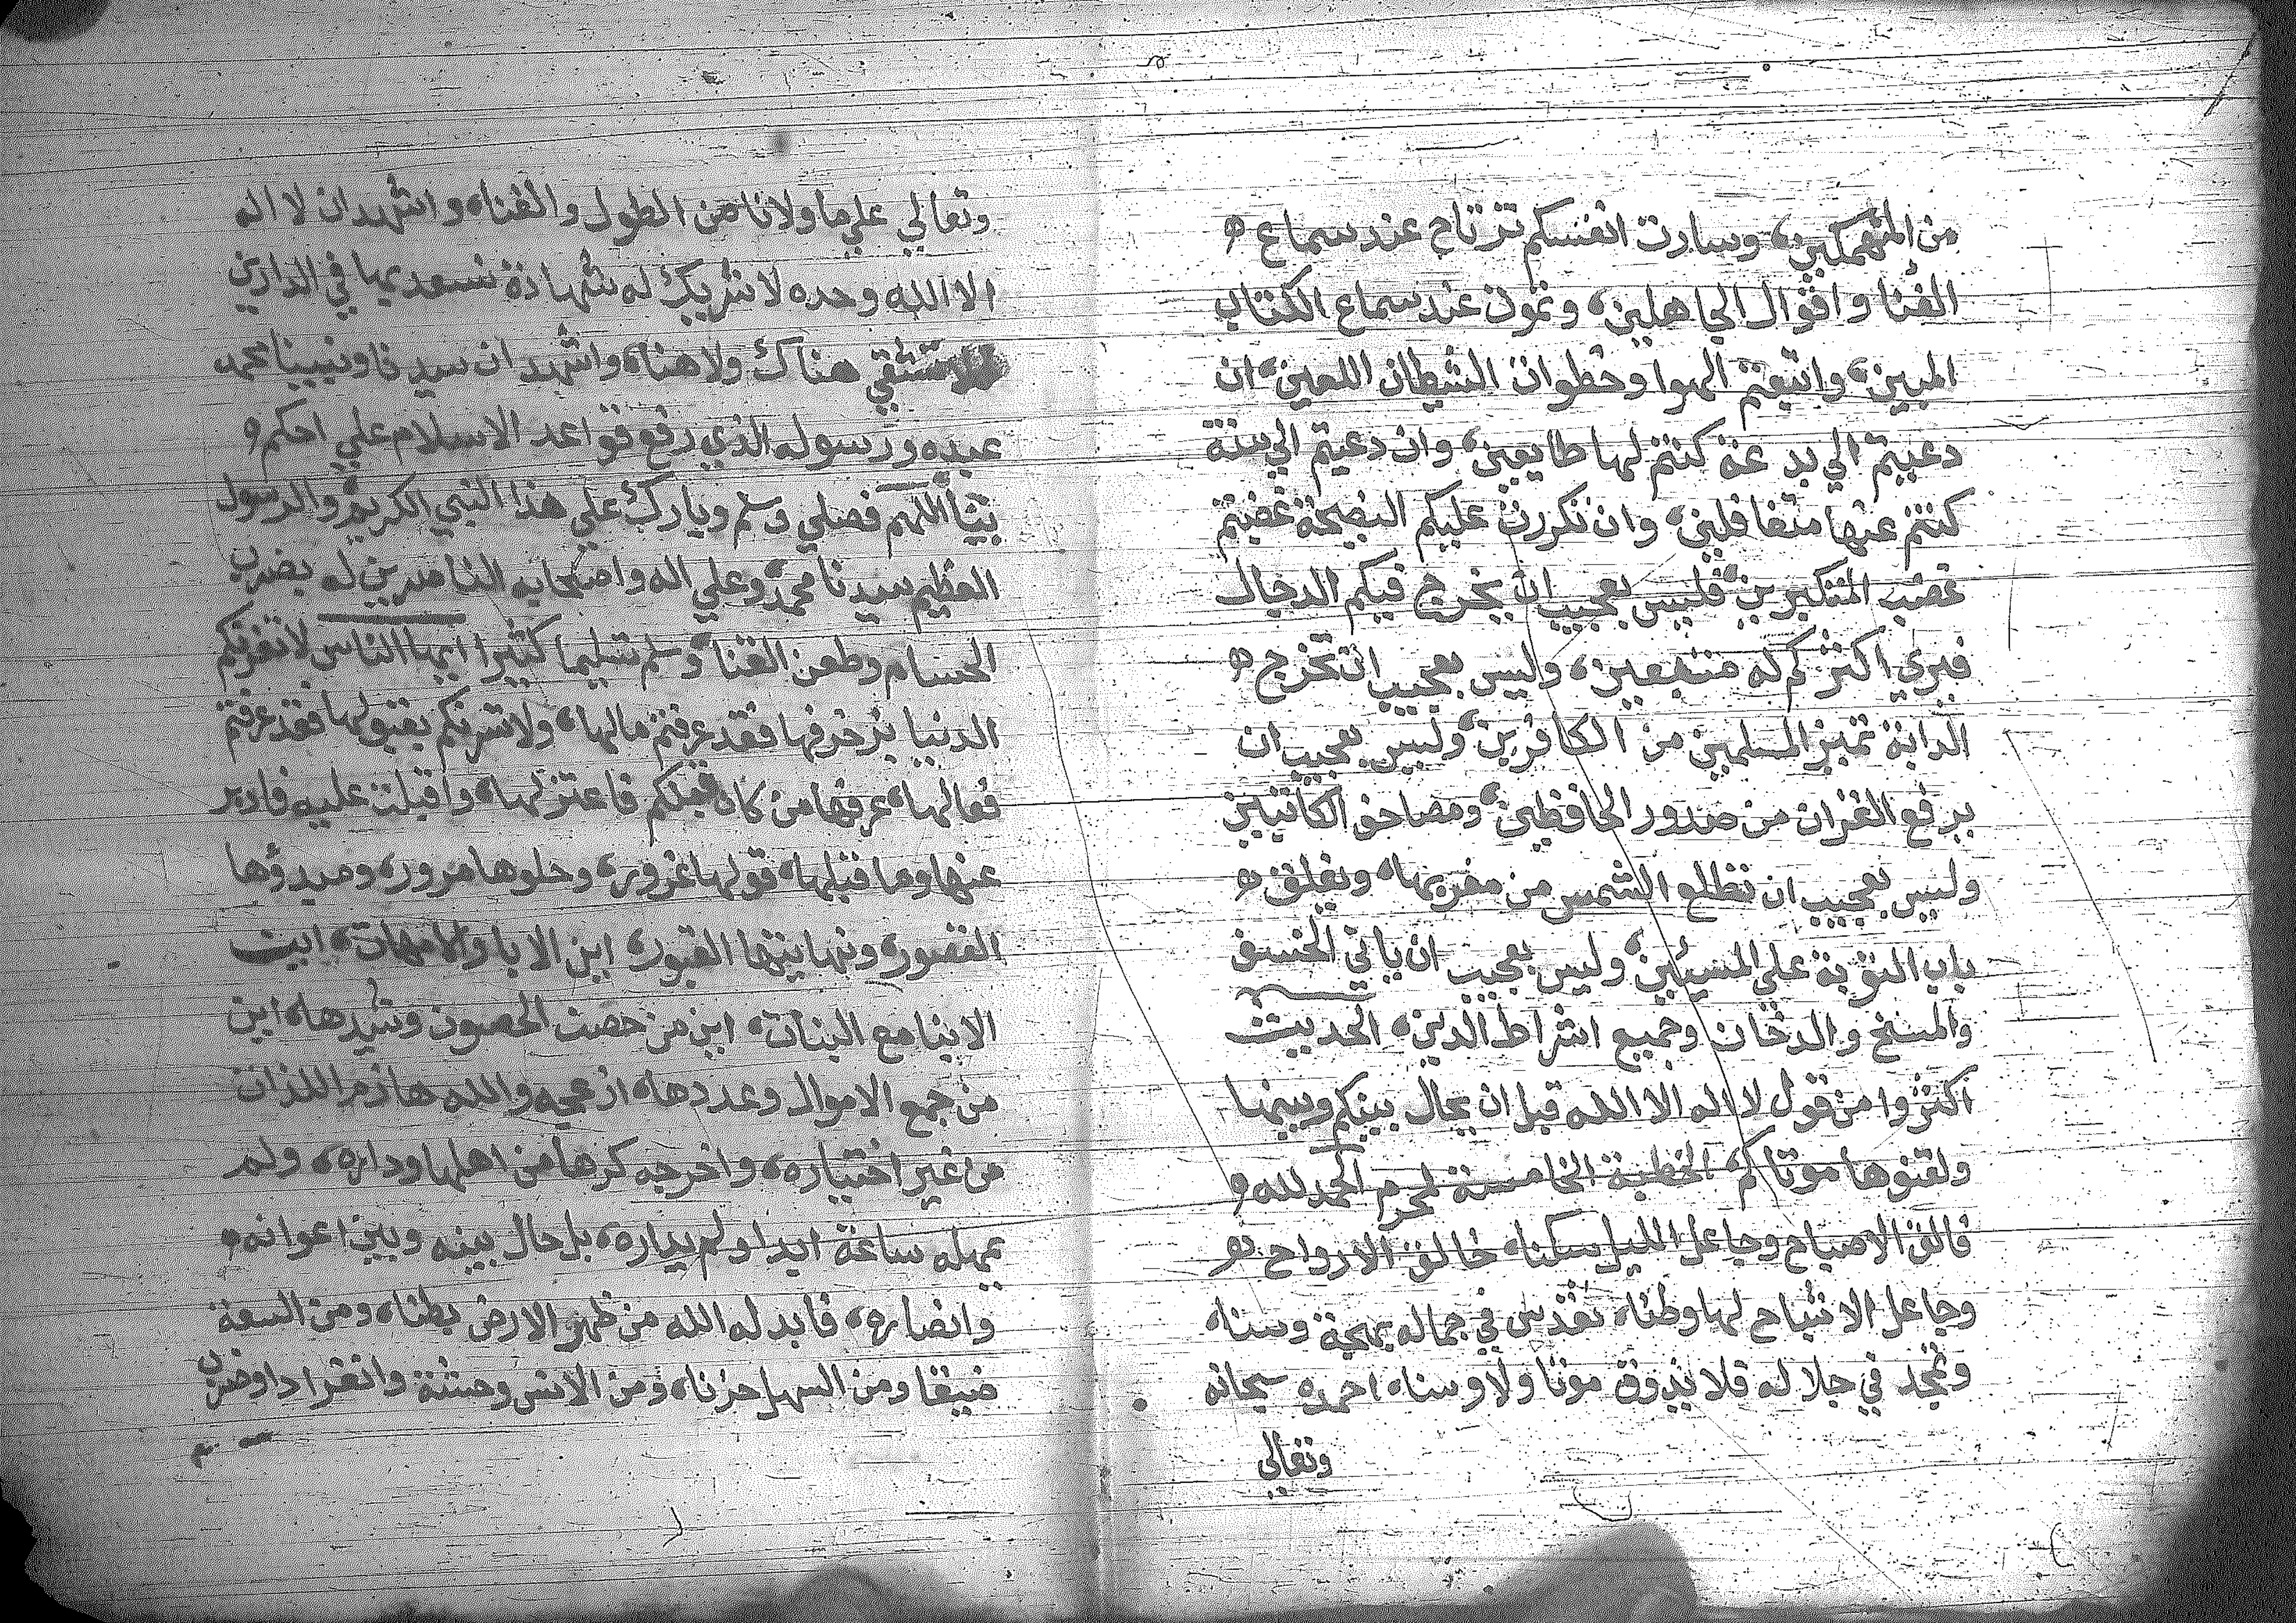 من المنهمكين، وسارت انفسكم ترتاح عند سماع
الغنا واقوال الجاهلين، وتموت عند سماع الكتاب
المبين، واتبعتم الهوا وخطوات الشيطان اللعين، ان
دعيتم الي بدعة كنتم لها طايعين، وان دعيتم الي سنة
كنتم عنها متغافلين، وان تكررت عليكم النصيحة غضبتم
غضب المتكبرين، فليس بعجيب ان يخرج فيكم الدجال
فيري اكثركم له متبعين، وليس بعجيب ان تخرج
الدابة تميز المسلمين من الكافرين، وليس بعجيب ان
يرفع القران من صدور الحافظين، ومصاحف الكاتبين
وليس بعجيب ان تطلع الشمس من مغربها، ويغلق
باب التوبة علي المسيئين، وليس بعجيب ان ياتي الخسف
والمسخ والدخان وجميع اشراط الدين، الحديث
اكثروا من قول لا اله الا الله قبل ان يحال بينكم وبينها
ولقنوها موتاكم، الخطبة الخامسة لمحرم الحمد لله
فالق الاصباح وجاعل الليل سكنا، خالق الارواح
وجاعل الاشباح لها وطنا، تقدس في جماله بهجة وسنا،
وتمجد في جلاله فلا يذوق موتا ولا وسنا، احمده سبحانه
وتعالي
وتعالي علي ما ولانا من الطول والغنا، واشهد ان لا اله
الا الله وحده لا شريك له شهادة نسعد بها في الدارين
فلا نشقي هناك ولا هنا، واشهد ان سيدنا ونبينا محمد
عبده ورسوله الذي رفع قواعد الاسلام علي احكم
بنا، اللهم فصلي وسلم وبارك علي هذا النبي الكريم، والرسول
العظيم سيدنا محمد، وعلي اله واصحابه الناصرين له بضرب
الحسام وطعن القنا، وسلم تسليما كثيرا ايها الناس لا تغرنكم
الدنيا بزخرفها فقد عرفتم مالها، ولا تسرنكم بقبولها فقد عرفتم
فعالها، عرفها من كان قبلكم فاعتزلها، واقبلت عليه فادبر
عنها وما قبلها، قولها غرور، وحلوها مرور، ومبدؤها
القصور، ونهايتها القبور، اين الابا والامهات، اين
الابنا مع البنات، اين من حصن الحصون وشيدها، اين
من جمع الاموال وعددها، ازعجه والله هازم اللذات
من غير اختياره، واخرجه كرها من اهلها وداره، ولم
يمهله ساعة ابدا ولم يداره، بل حال بينه وبين اعوانه
وانصاره، فابدله الله من ظهر الارض بطنا، ومن السعة
ضيقا ومن السهل حزنا، ومن الانس وحشة وانفرادا وضرب